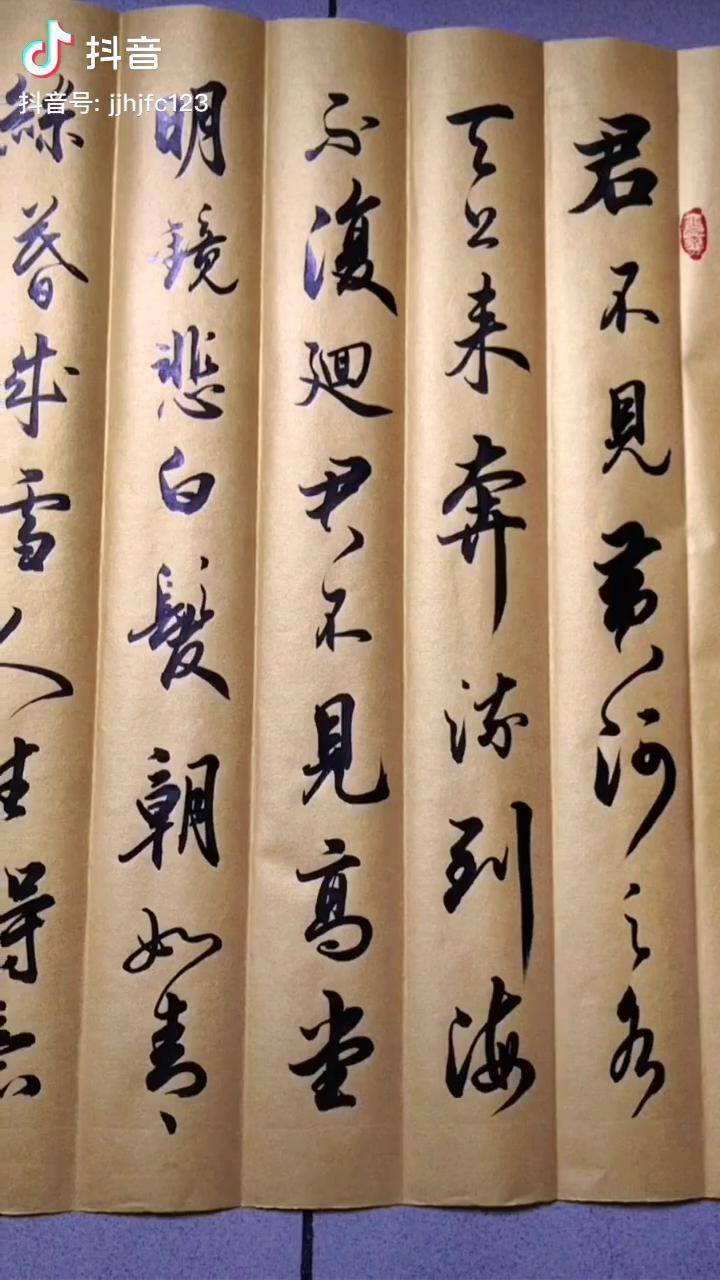 抖音
抖音号: jjhjfc123
君不見黄河之水
天上来奔流到海
不復廻君不見高堂
明鏡悲白髮朝如青
絲暮成雪人生得意